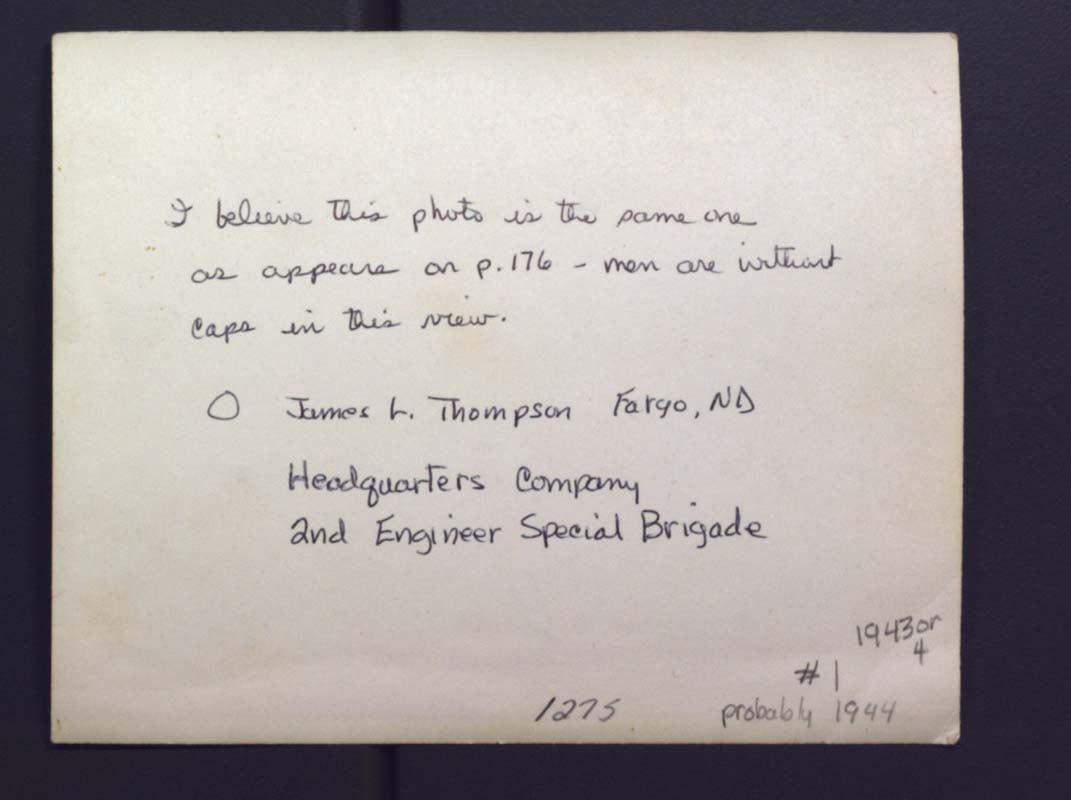 I believe this photo is the same one
as appears on p.176 - men are without
caps in this view.
James L. Thompson Fargo, ND
Headquarters Company
2nd Engineer Special Brigade
1943 or
4
#1
1275
probably 1944